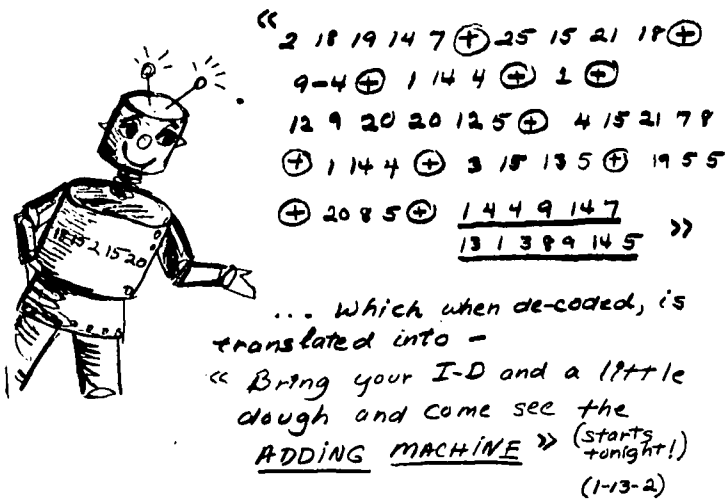 « 2 18 19 14 7 ⊕ 25 15 21 18 ⊕
9-4 ⊕ 1 14 4 ⊕ 1 ⊕
12 9 20 20 12 5 ⊕ 4 15 21 7 8
⊕ 1 14 4 ⊕ 3 15 13 5 ⊕ 19 5 5
⊕ 20 8 5 ⊕ 1 4 4 9 14 7
13 1 3 8 9 14 5 »
18 15 2 15 20
... which when de-coded, is
translated into -
« Bring your I-D and a little
dough and come see the
ADDING MACHINE » (starts
tonight!)
(1-13-2)